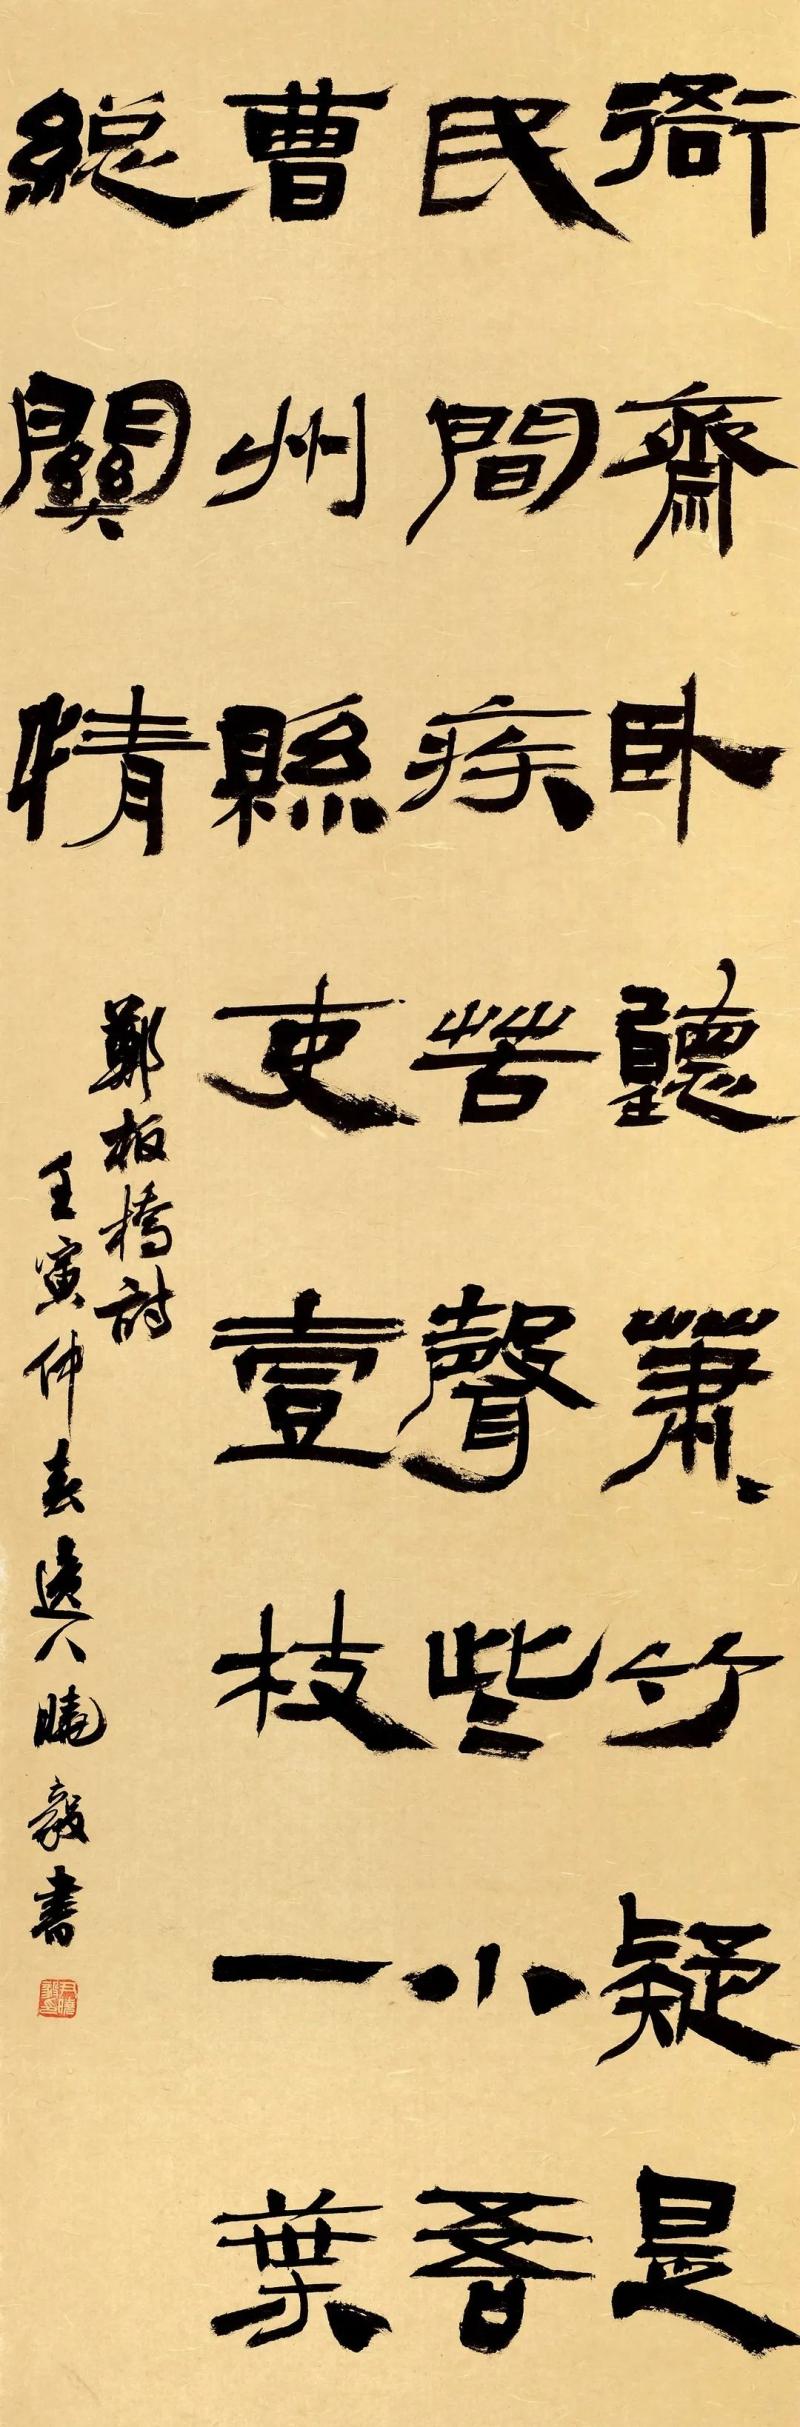 衙齋卧聽蕭〻竹疑是
民間疾苦聲些小吾
曹州縣吏壹枝一葉
總關情
鄭板橋詩
壬寅仲春人曉毅書